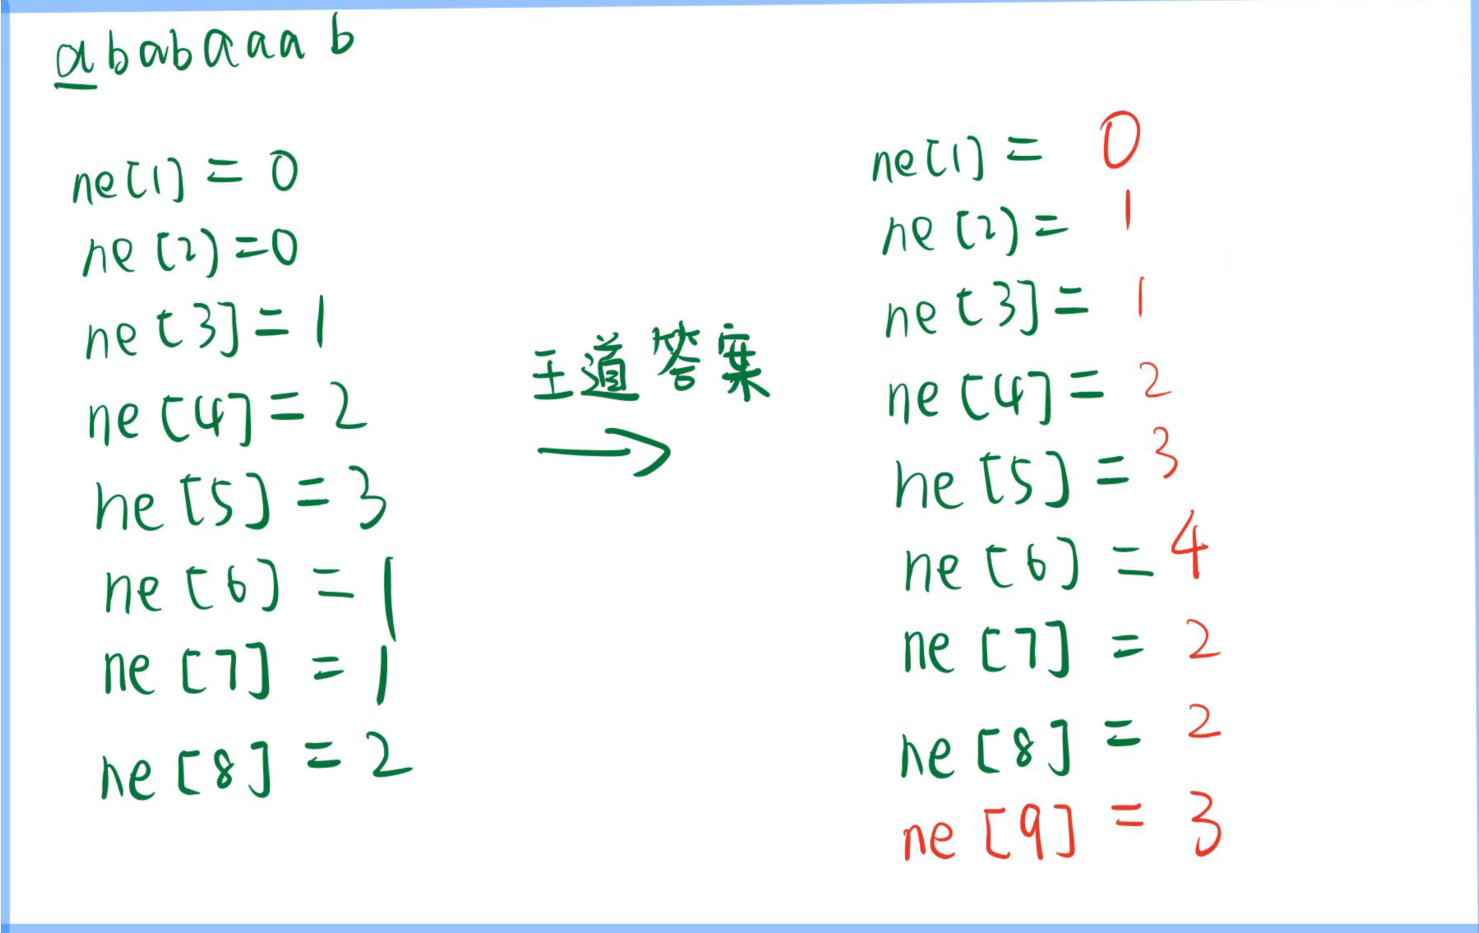 ababaaab
ne[1] = 0
ne[2] = 0
ne[3] = 1
ne[4] = 2
ne[5] = 3
ne[6] = 1
ne[7] = 1
ne[8] = 2
王道答案
→
ne[1] = 0
ne[2] = 1
ne[3] = 1
ne[4] = 2
ne[5] = 3
ne[6] = 4
ne[7] = 2
ne[8] = 2
ne[9] = 3